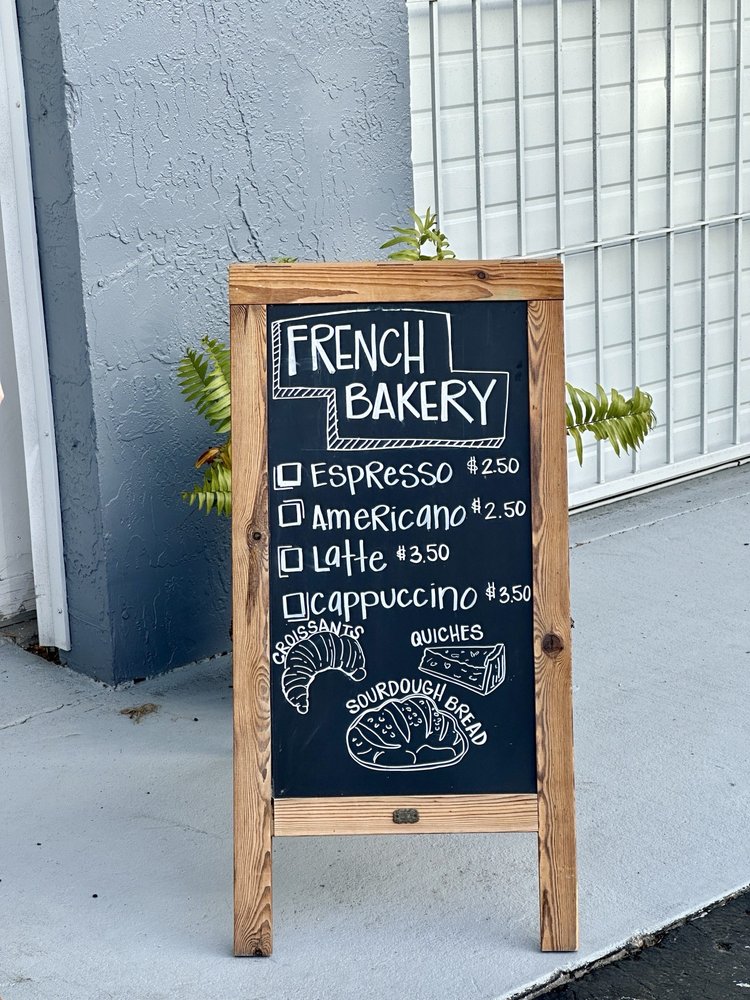 FRENCH
BAKERY
Espresso $2.50
Americano $2.50
Latte $3.50
cappuccino $3.50
CROISSANTS
QUICHES
SOURDOUGH BREAD